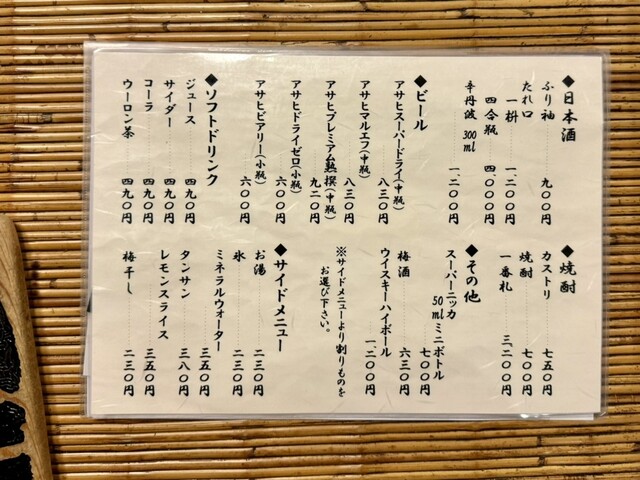 ◆日本酒
ふり袖 九〇〇円
たれ口
一枡 一、二〇〇円
四合瓶 四、〇〇〇円
辛丹波 300ml 一、二〇〇円
◆ビール
アサヒスーパードライ(中瓶) 八三〇円
アサヒマルエフ(中瓶) 八三〇円
アサヒプレミアム熟撰(中瓶) 九二〇円
アサヒドライゼロ(小瓶) 六〇〇円
アサヒビアリー(小瓶) 六〇〇円
◆ソフトドリンク
ジュース 四九〇円
サイダー 四九〇円
コーラ 四九〇円
ウーロン茶 四九〇円
◆焼酎
カストリ 七五〇円
焼酎 七〇〇円
一番札 三、二〇〇円
◆その他
スーパーニッカ
50mlミニボトル 七〇〇円
梅酒 六三〇円
ウイスキーハイボール 一、二〇〇円
※サイドメニューより割りものを
お選び下さい。
◆サイドメニュー
お湯 二三〇円
氷 二三〇円
ミネラルウォーター 三五〇円
タンサン 三八〇円
レモンスライス 三五〇円
梅干し 二三〇円